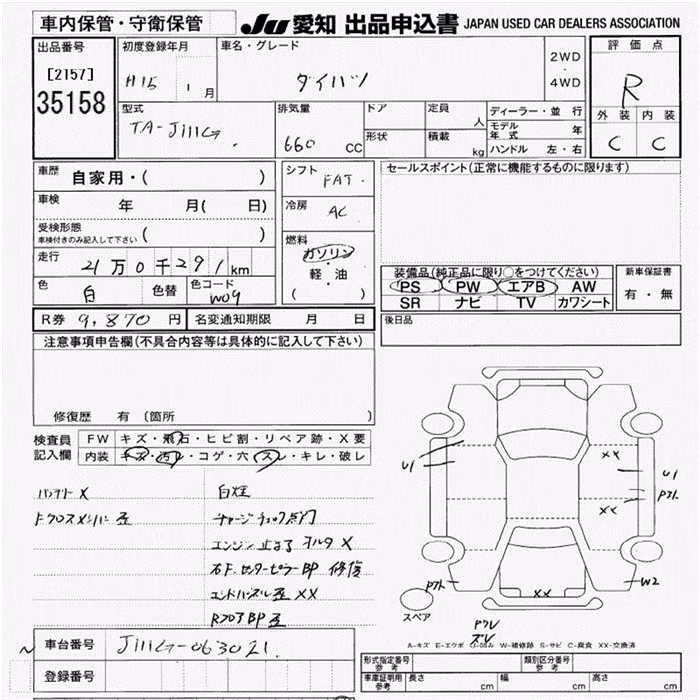 車内保管・守衛保管
JU 愛知 出品申込書 JAPAN USED CAR DEALERS ASSOCIATION
出品番号
[2157]
35158
初度登録年月
H15 1月
車名・グレード
ダイハツ
2WD
・
4WD
評価点
R
外装 内装
C C
型式
TA-J111G
排気量
660 CC
ドア
形状
定員
人
積載
kg
ディーラー・並行
モデル年式 年
ハンドル 左・右
車歴 自家用・( )
車検 年 月( 日)
受検形態
車検付きのみ記入して下さい ( )
走行 21万0千291km
色 白 色替 色コード W09
シフト FAT
冷房 AC
燃料
ガソリン
軽・油
( )
セールスポイント(正常に機能するものに限ります)
装備品(純正品に限り○をつけてください)
PS PW エアB AW
SR ナビ TV カワシート
新車保証書
有・無
R券 9,870円 名変通知期限 月 日
後日品
注意事項申告欄(不具合内容等は具体的に記入して下さい)
修復歴 有 〔箇所 〕
検査員記入欄
FW キズ・飛石・ヒビ割・リペア跡・X要
内装 キズ・汚レ・コゲ・穴・スレ・キレ・破レ
バッテリーX
白煙
FクロスメンバーB歪
チャージチェック点灯
エンジン止まる オルタX
右F,センターピラーBP 修復
エンドパネル歪 XX
RフロアBP歪
U1
XX
U1
XX
W2
XX
スペア
A-キズ E-エクボ U-凹み W-補修跡 S-サビ C-腐食 XX-交換済
車台番号 J111G-063021
登録番号
形式指定番号 参考
類別区分番号 参考
車庫証明用 参考 長さ cm 幅 cm 高さ cm